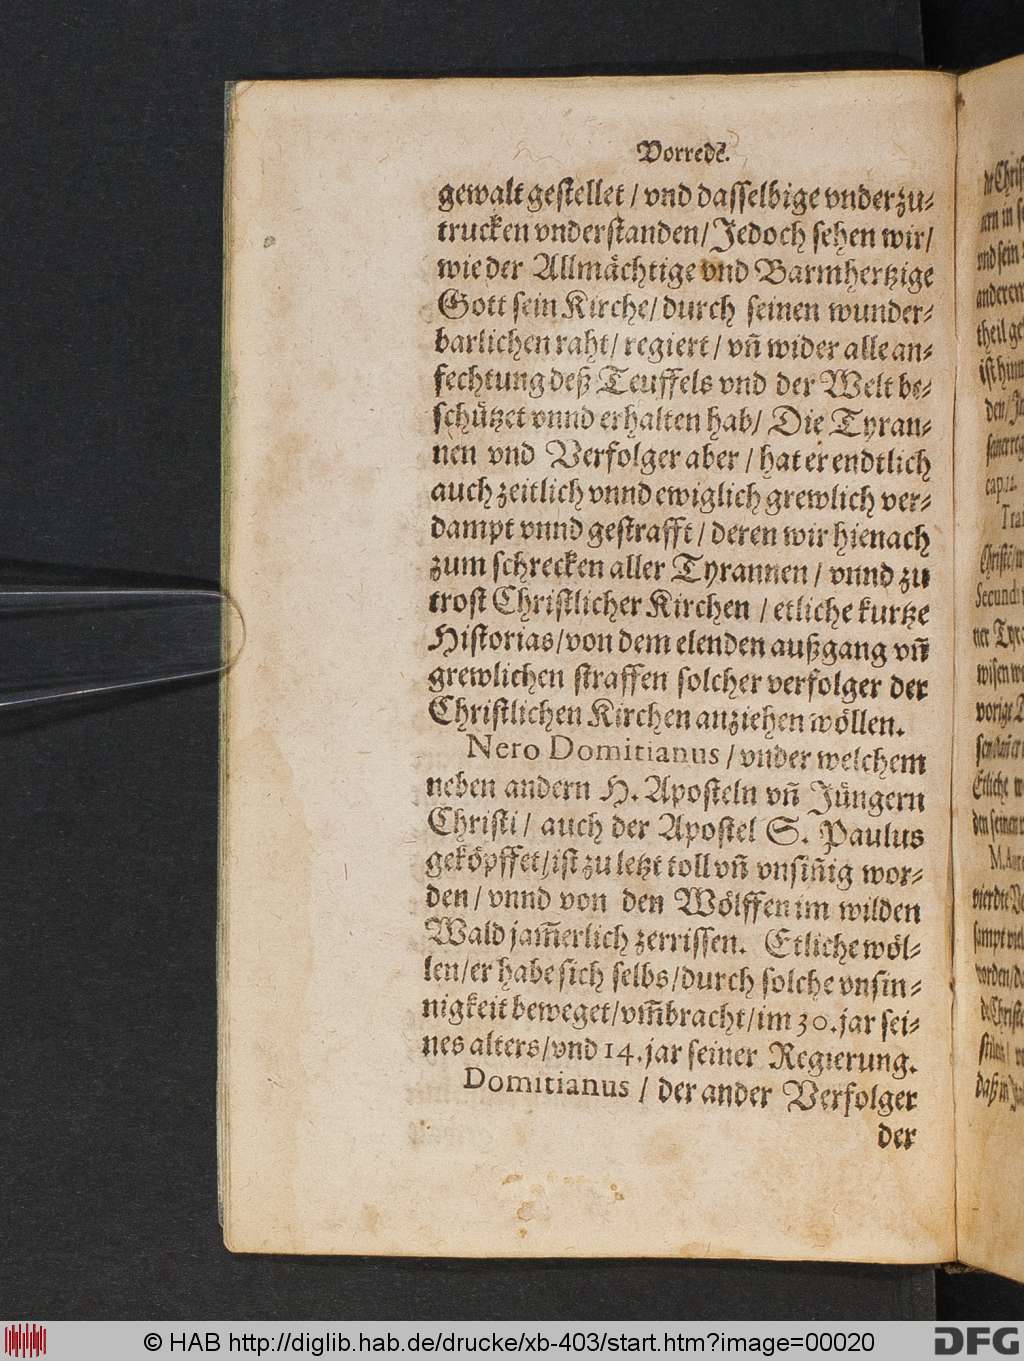 Vorrede.
gewalt gestellet / vnd dasselbige vnderzu-
trucken vnderstanden / Jedoch sehen wir /
wie der Allmächtige vnd Barmhertzige
Gott sein Kirche / durch seinen wunder-
barlichen raht / regiert / vñ wider alle an-
fechtung deß Teuffels vnd der Welt be-
schützet vnnd erhalten hab / Die Tyran-
nen vnd Verfolger aber / hat er endtlich
auch zeitlich vnnd ewiglich grewlich ver-
dampt vnnd gestrafft / deren wir hienach
zum schrecken aller Tyrannen / vnnd zu
trost Christlicher Kirchen / etliche kurtze
Historias / von dem elenden außgang vñ
grewlichen straffen solcher verfolger der
Christlichen Kirchen anziehen wöllen.
Nero Domitianus / vnder welchem
neben andern H. Aposteln vñ Jüngern
Christi / auch der Apostel S. Paulus
geköpffet / ist zu letzt toll vñ vnsiñig wor-
den / vnnd von den Wölffen im wilden
Wald jam̃erlich zerrissen. Etliche wöl-
len / er habe sich selbs / durch solche vnsin-
nigkeit beweget / vm̃bracht / im 30. jar sei-
nes alters / vnd 14. jar seiner Regierung.
Domitianus / der ander Verfolger
der
© HAB http://diglib.hab.de/drucke/xb-403/start.htm?image=00020
DFG